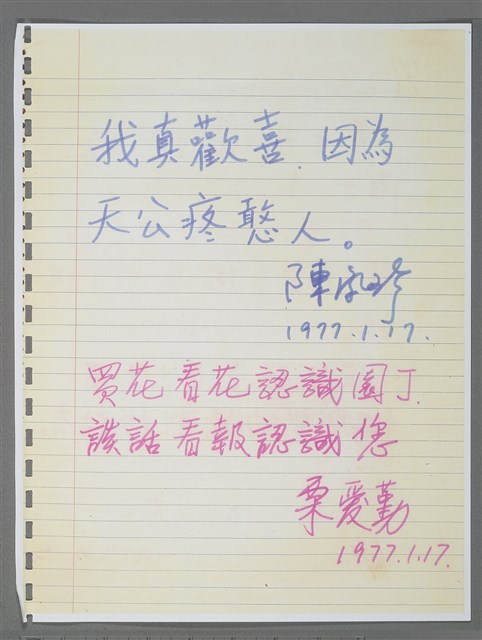 我真歡喜.因為
天公疼憨人。
陳
1977.1.17.
買花看花認識園丁.
談話看報認識您
栗愛勤
1977.1.17.